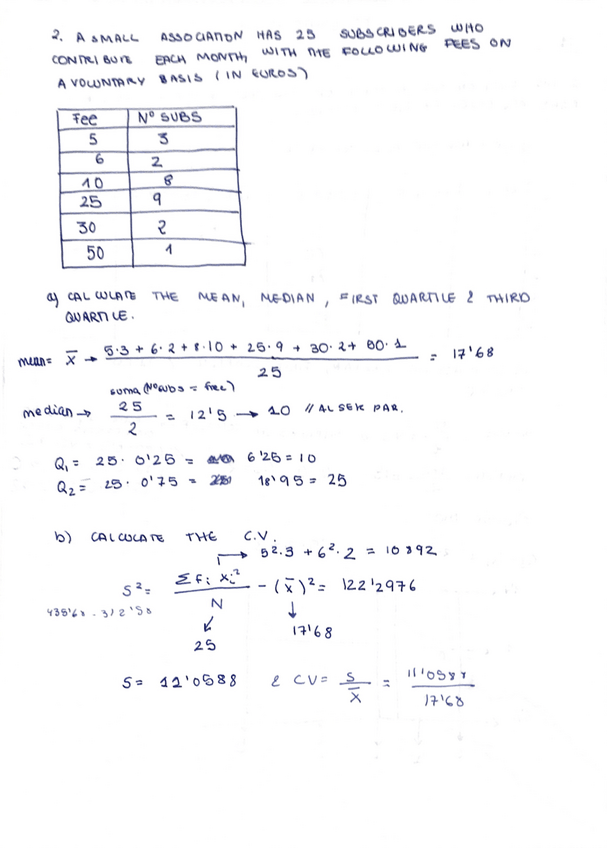 2. A SMALL ASSOCIATION HAS 25 SUBSCRIBERS WHO
CONTRIBUTE EACH MONTH, WITH THE FOLLOWING FEES ON
A VOLUNTARY BASIS (IN EUROS)
Fee Nº SUBS
5 3
6 2
10 8
25 9
30 2
50 1
a) CALCULATE THE MEAN, MEDIAN, FIRST QUARTILE & THIRD
QUARTILE.
mean= x̄ → 5·3 + 6·2 + 8·10 + 25·9 + 30·2 + 50·1 / 25 = 17'68
suma (Nº subs = free)
median → 25 / 2 = 12'5 → 10 // AL SER PAR.
Q₁ = 25 · 0'25 = 6'25 = 10
Q₂ = 25 · 0'75 = 18'95 = 25
b) CALCULATE THE C.V.
→ 5²·3 + 6²·2 = 10892
S² = Σ fi xi² / N - (x̄)² = 122'2976
438'68 - 312'58
25
17'68
S = 11'0588 & CV = S / x̄ = 11'0588 / 17'68